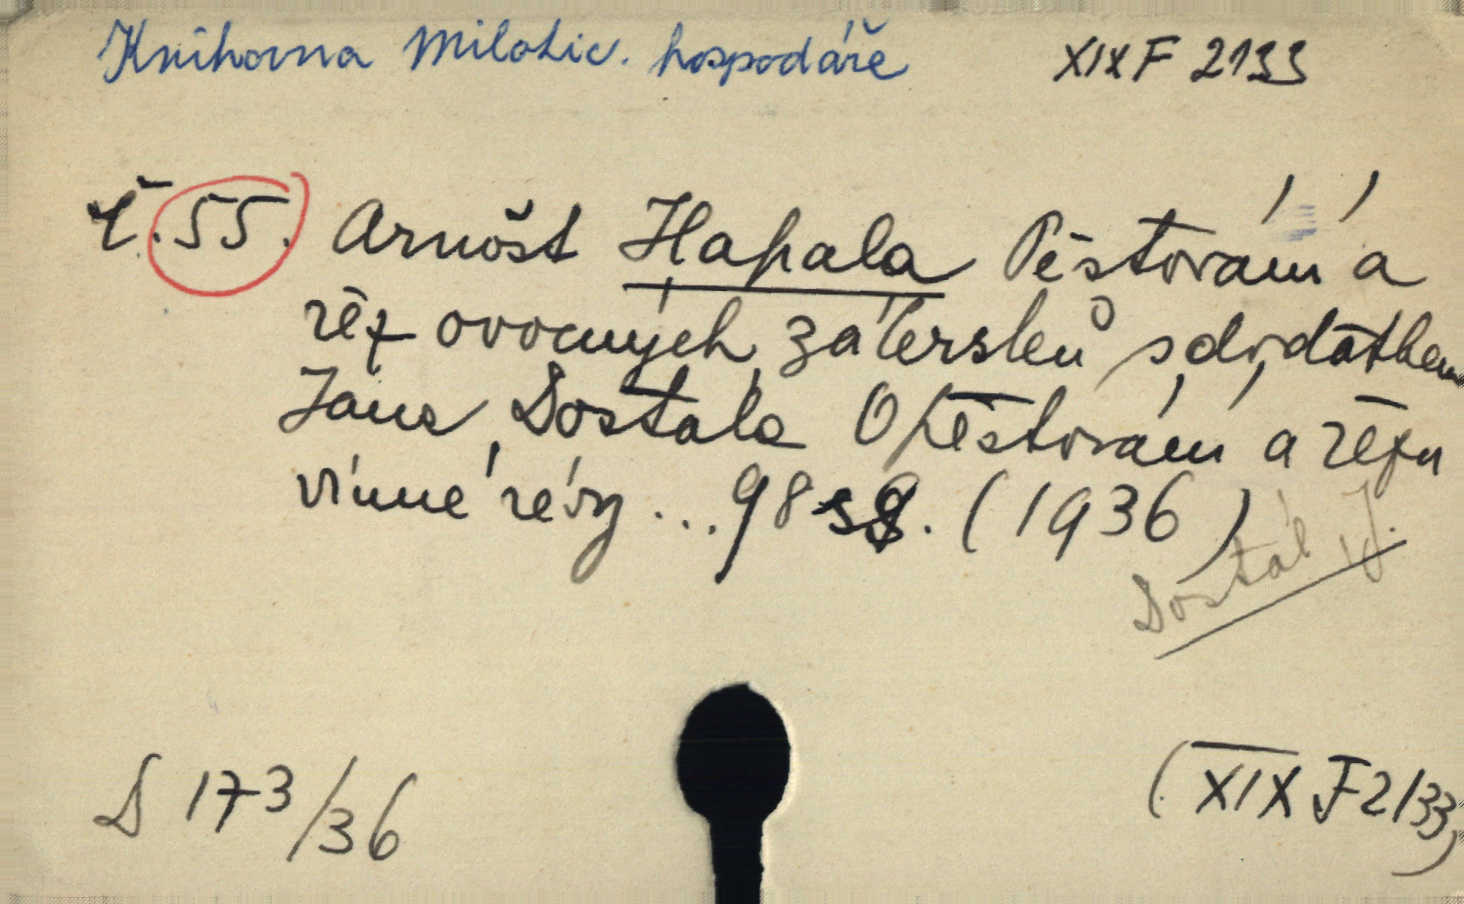 Knihovna Milotic. hospodáře XIX F 2133
Č. 55. Arnošt Hapala Pěstování a
řěz ovocných zákrsků s dodatkem
Jana Dostála O pěstování a řezu
vinné révy ... 98 s8. (1936)
Dostál J.
D 173/36
(XIX F 2133)